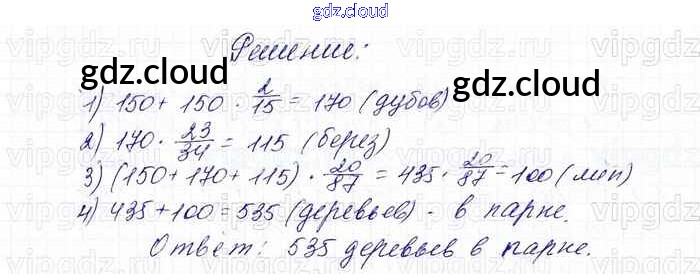 gdz.cloud
Решение:
gdz.cloud
gdz.cloud
1) 150 + 150 · 2/15 = 170 (дубов)
2) 170 · 23/34 = 115 (берез)
3) (150 + 170 + 115) · 20/87 = 435 · 20/87 = 100 (лип)
4) 435 + 100 = 535 (деревьев) - в парке.
Ответ: 535 деревьев в парке.